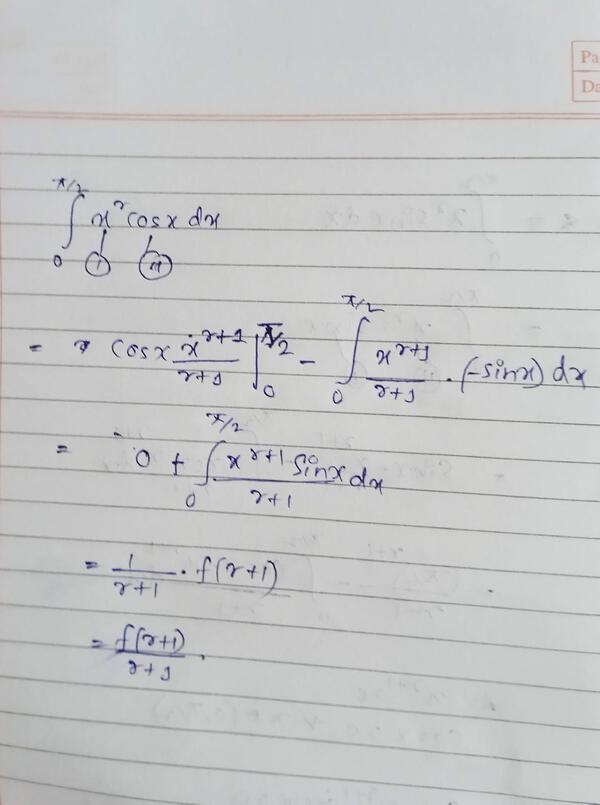 Pa
Da
∫₀^{π/2} x^r cosx dx
I II
= cosx x^{r+1}/r+1 |₀^{π/2} − ∫₀^{π/2} x^{r+1}/r+1 · (−sinx) dx
= 0 + ∫₀^{π/2} x^{r+1} sinx dx / r+1
= 1/r+1 · f(r+1)
= f(r+1)/r+1 .